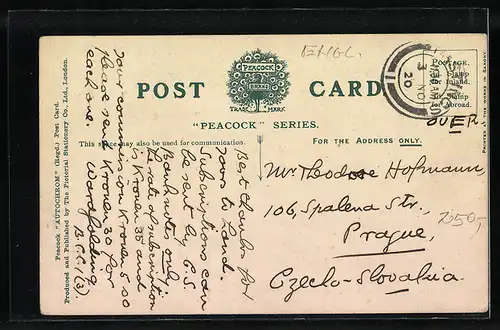 ENGL.
POST CARD
PEACOCK
BRAND
TRADE MARK
"PEACOCK" SERIES.
This space may also be used for communication.
FOR THE ADDRESS ONLY.
POSTAGE.
½d. Stamp
for Inland.
1d. Stamp
for Abroad.
OVER.
PRINTED AT THE WORKS IN SAXONY.
3 NO
20
Peacock "AUTOCHROM" (Regd.) Post Card.
Produced and Published by The Pictorial Stationery Co., Ltd., London.
Best thanks for
yours to hand.
Subscriptions can
be sent by C.S.
Banknotes only.
The rate of subscription
is Kronen 35 and
your commission Kronen 5 so
please send Kronen 30 for
each one.
B.C.C.1(3).
Mr. Theodore Hofmann,
106, Spalena Str.,
Prague,
Czecho-Slovakia.
250,-